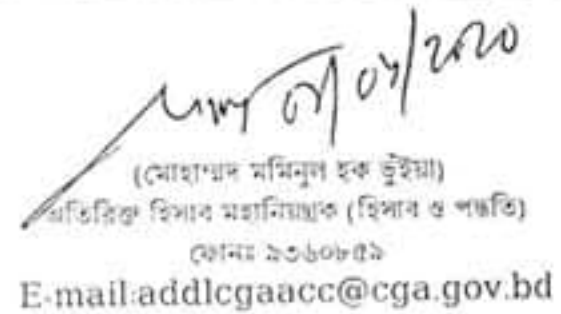 (মোহাম্মদ মমিনুল হক ভূঁইয়া)
অতিরিক্ত হিসাব মহানিয়ন্ত্রক (হিসাব ও পদ্ধতি)
ফোনঃ ৯৩৬০৮৫৯
E-mail:addlcgaacc@cga.gov.bd